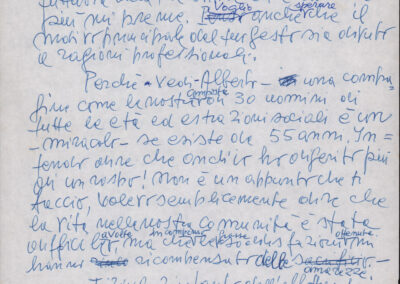 più mi preme. Voglio sperare anche che il
motivo principale del tuo gesto sia dovuto
a ragioni professionali.
Perchè - vedi Alberto - una compa=
gine come la nostra composta di 30 uomini di
tutte le età ed estrazioni sociali è un
- miracolo - se esiste da 55 anni. In=
tendo dire che anch'io ho digerito più
di un rospo! Non è un appunto che ti
faccio, volevo semplicemente dire che
la vita nella nostra comunità è stata
a volte difficile, ma che le soddisfazioni ottenute mi
hanno ricompensato delle amarezze.